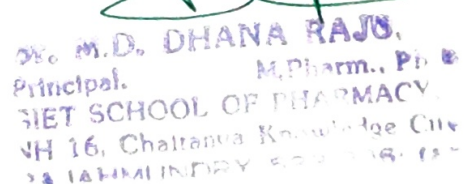 Dr. M.D. DHANA RAJU,
Principal. M.Pharm., Ph
GIET SCHOOL OF PHARMACY
NH 16, Chaitanya Knowledge City
RAJAHMUNDRY